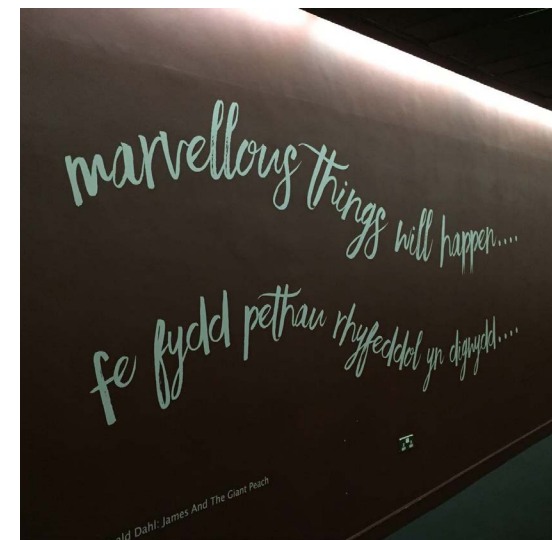 marvellous things will happen....
fe fydd pethau rhyfeddol yn digwydd....
Dahl: James And The Giant Peach